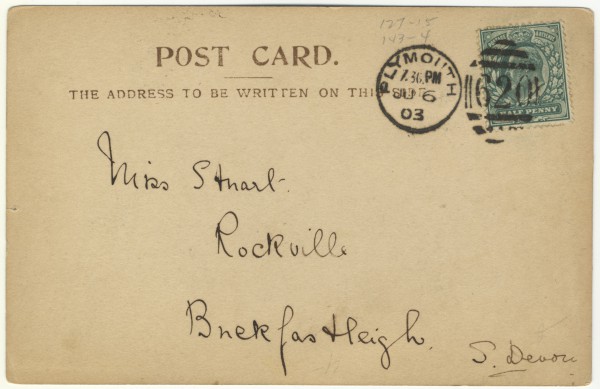 127-15
143-4
POST CARD.
THE ADDRESS TO BE WRITTEN ON THIS SIDE.
PLYMOUTH
7.30 PM
6
03
620
HALF PENNY
Miss Stuart.
Rockville
Buckfastleigh.
S. Devon